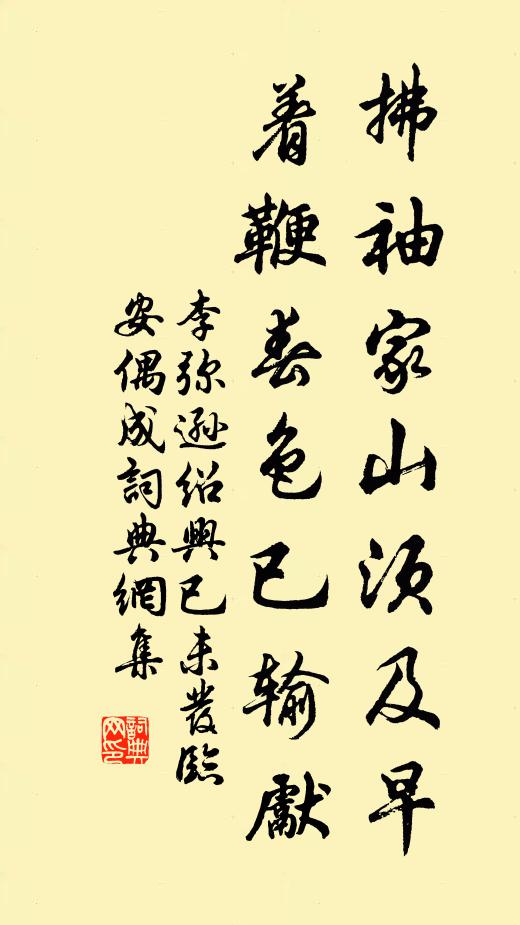 拂袖家山須及早
着鞭春色已輸獻
李弥遜紹興已未發臨
安偶成詞典網集
詞典
网印